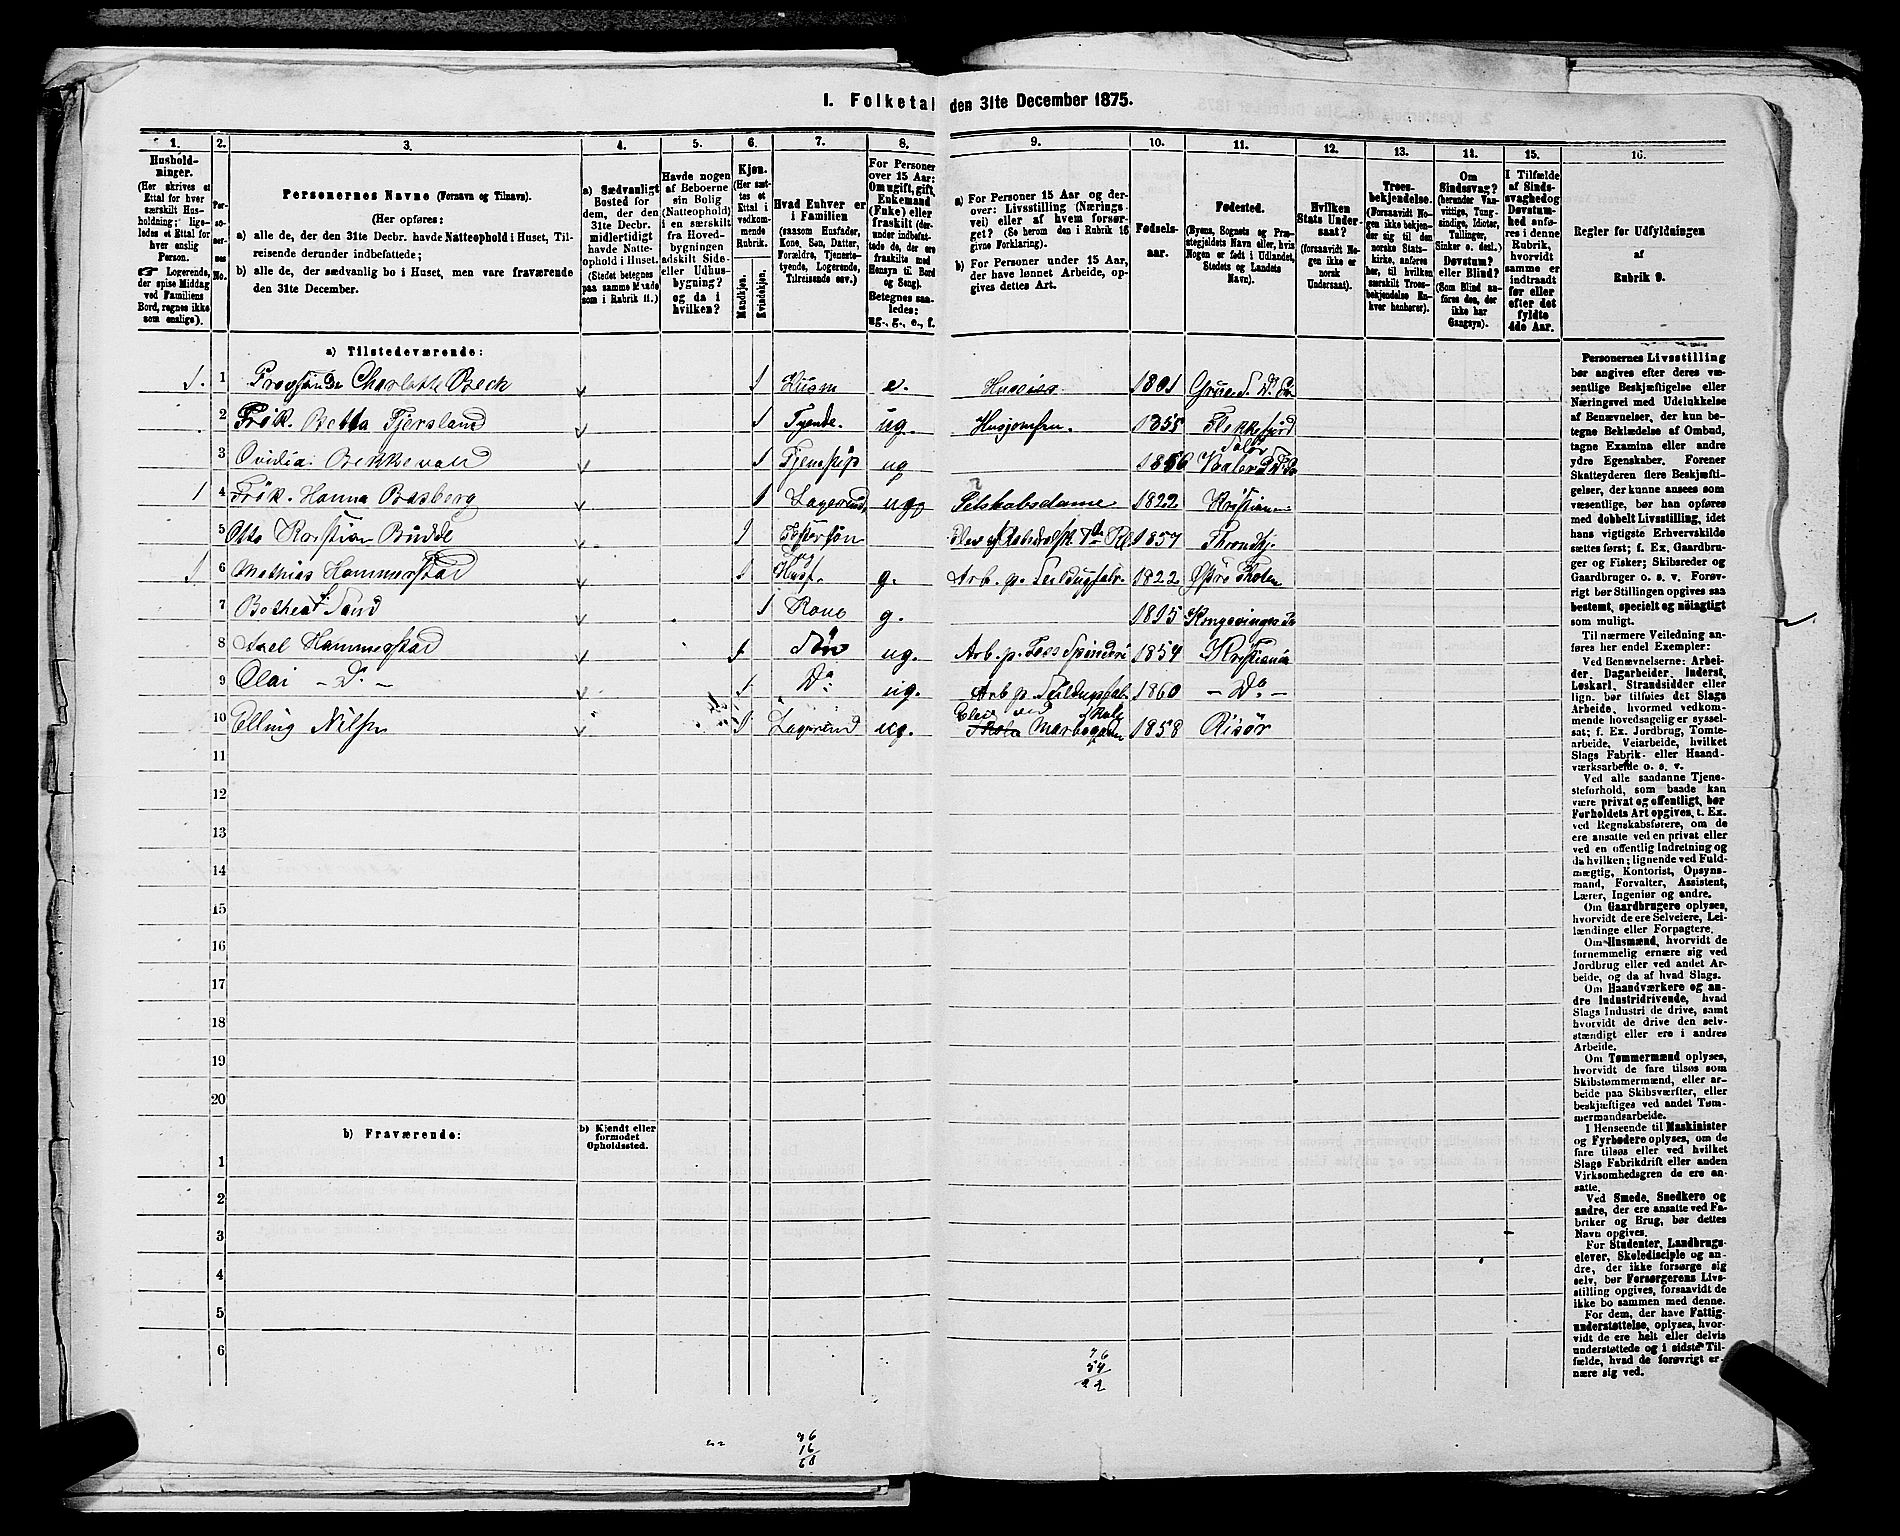 I. Folketal den 31te December 1875.
1.
2.
3.
4.
5.
6.
7.
8.
9.
10.
11.
12.
13.
14.
15.
16.
Hushold-
ninger.
(Her skrives et
Ettal for hver
særskilt Hus-
holdning; lige-
ledes et Ettal for
hver enslig
Person.
☞ Logerende,
der spise Middag
ved Familiens
Bord, regnes ikke
som enslige).
Per-
so-
ner-
nes
No.
Personernes Navne (Fornavn og Tilnavn).
(Her opføres:
a) alle de, der den 31te Decbr. havde Natteophold i Huset, Til-
reisende derunder indbefattede;
b) alle de, der sædvanlig bo i Huset, men vare fraværende
den 31te December.
a) Sædvanligt
Bosted for
dem, der den
31te Decbr.
midlertidigt
havde Natte-
ophold i Huset.
(Stedet betegnes
paa samme Maade
som i Rubrik 11.)
Havde nogen
af Beboerne
sin Bolig
(Natteophold)
i en særskilt
fra Hoved-
bygningen
adskilt Side-
eller Udhus-
bygning?
og da i
hvilken?
Kjøn.
(Her sæt-
tes et
Ettal i
vedkom-
mende
Rubrik.
Mandkjøn.
Kvindekjøn.
Hvad Enhver er
i Familien
(saasom Husfader,
Kone, Søn, Datter,
Forældre, Tjeneste-
tyende, Logerende,
Tilreisende osv.)
For Personer
over 15 Aar:
Om ugift, gift,
Enkemand
(Enke) eller
fraskilt (der-
under indbefat-
tede de, der ere
fraskilte med
Hensyn til Bord
og Seng).
Betegnes saa-
ledes:
ug., g., e., f.
a) For Personer 15 Aar og der-
over: Livsstilling (Nærings-
vei) eller af hvem forsør-
get? (Se herom den i Rubrik 16
givne Forklaring).
b) For Personer under 15 Aar,
der have lønnet Arbeide, op-
gives dettes Art.
Fødsels-
aar.
Fødested.
(Byens, Sognets og Præ-
stegjeldets Navn eller, hvis
Nogen er født i Udlandet,
Stedets og Landets
Navn).
Hvilken
Stats Under-
saat?
(forsaavidt No-
gen ikke er
norsk
Undersaat).
Troes-
bekjendelse.
(Forsaavidt No-
gen ikke bekjen-
der sig til den
norske Stats-
kirke, anføres
her, til hvilken
særskilt Troes-
bekjendelse En-
hver henhører).
Om
Sindssvag?
(herunder Van-
vittige, Tung-
sindige, Idioter,
Tullinger,
Sinker o. desl.)
Døvstum?
eller Blind?
(Som Blind an-
føres den, der
ikke har
Gangsyn).
I Tilfælde
af Sinds-
svaghed og
Døvstum-
hed anfø-
res i denne
Rubrik,
hvorvidt
samme er
indtraadt
før eller
efter det
fyldte
4de Aar.
Regler for Udfyldningen
af
Rubrik 9.
a) Tilstedeværende:
1. 1 Charlotte Beck 1 e. 1801
2 Frøk. Betta Fjersland 1 Tyende. ug. Husjomfru. 1855 Flekkefjord
3 Ovidia Bekkevold 1 ug 1856
1 4 Frøk. Hanna Basberg 1 ug. Selskabsdame 1822 Kristian
5 Otto Kristian Budde 1 1857 Throndhj.
1 6 Mathias Hammerstad 1 Husf. g. Arb. p. Seildugfabr. 1822 Østre Thoten
7 Bothea Sand 1 Kone g. 1815
8 Axel Hammerstad 1 Søn ug. Arb. p. Spinderi 1854 Kristiania
9 Olai – Do – 1 Do ug. Arb. p. Seildugsfab. 1860 – Do –
10 Elling Nilsen 1 Logerend ug. Elev ved Skole 1858 Risør
11
12
13
14
15
16
17
18
19
20
b) Fraværende:
b) Kjendt eller
formodet
Opholdssted.
1
2
3
4
5
6
Personernes Livsstilling
bør angives efter deres væ-
sentlige Beskjæftigelse eller
Næringsvei med Udelukkelse
af Benævnelser, der kun be-
tegne Beklædelse af Ombud,
tagne Examina eller andre
ydre Egenskaber. Forener
Skatteyderen flere Beskjæfti-
gelser, der kunne ansees som
væsentlige, bør han opføres
med dobbelt Livsstilling, idet
hans vigtigste Erhvervskilde
sættes først; f. Ex. Gaardbru-
ger og Fisker; Skibsreder og
Gaardbruger o. s. v. Forøv-
rigt bør Stillingen opgives saa
bestemt, specielt og nöiagtigt
som muligt.
Til nærmere Veiledning an-
føres her endel Exempler:
Ved Benævnelserne: Arbei-
der, Dagarbeider, Inderst,
Løskarl, Strandsidder eller
lign. bør tilføies det Slags
Arbeide, hvormed vedkom-
mende hovedsagelig er syssel-
sat; f. Ex. Jordbrug, Tomte-
arbeide, Veiarbeide, hvilket
Slags Fabrik- eller Haand-
værksarbeide o. s. v.
Ved alle saadanne Tjene-
steforhold, som baade kan
være privat og offentligt, bør
Forholdets Art opgives, t. Ex.
ved Regnskabsførere, om de
ere ansatte ved en privat eller
ved en offentlig Indretning og
da hvilken; lignende ved Fuld-
mægtig, Kontorist, Opsyns-
mand, Forvalter, Assistent,
Lærer, Ingeniør og andre.
Om Gaardbrugere oplyses,
hvorvidt de ere Selveiere, Lei-
lændinge eller Forpagtere.
Om Husmænd, hvorvidt de
fornemmelig ernære sig ved
Jordbrug eller ved andet Ar-
beide, og da af hvad Slags.
Om Haandværkere og an-
dre Industridrivende, hvad
Slags Industri de drive, samt
hvorvidt de drive den selv-
stændigt eller ere i andres
Arbeide.
Om Tømmermænd oplyses,
hvorvidt de fare tilsøs som
Skibstømmermænd, eller ar-
beide paa Skibsværfter, eller
beskjæftiges ved andet Tøm-
mermandsarbeide.
I Henseende til Maskinister
og Fyrbødere oplyses, om de
fare tilsøs eller ved hvilket
Slags Fabrikdrift eller anden
Virksomhedsgren de ere an-
satte.
Ved Smede, Snedkere og
andre, der ere ansatte ved Fa-
briker og Brug, bør dettes
Navn opgives.
For Studenter, Landbrugs-
elever, Skoledisciple og an-
dre, der ikke forsørge sig
selv, bør Forsørgerens Livs-
stilling opgives, forsaavidt de
ikke bo sammen med denne.
For dem, der have Fattig-
understøttelse, oplyses, hvor-
vidt de ere helt eller delvis
understøttede og i sidste Til-
fælde, hvad de forøvrigt er-
nære sig ved.
76
54
22
76
16
60